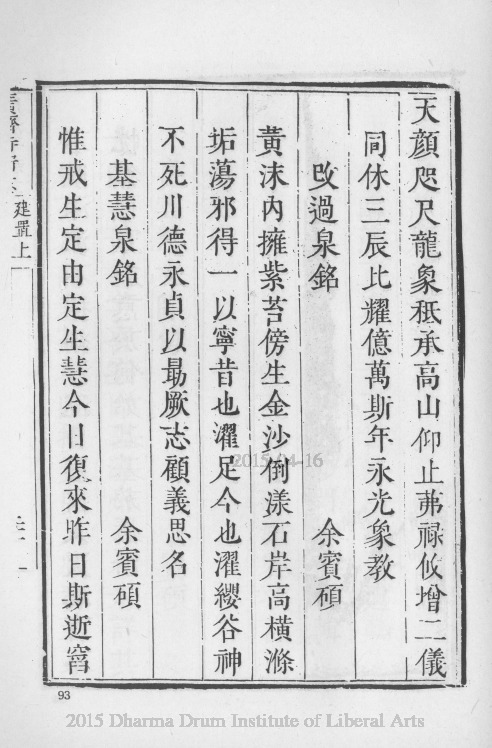 天顏咫尺龍象秪承高山仰止茀祿攸增二儀
同休三辰比耀億萬斯年永光象教
改過泉銘 余賓碩
黃沫內擁紫苔傍生金沙倒漾石岸高橫滌
垢蕩邪得一以寧昔也濯足今也濯纓谷神
不死川德永貞以勗厥志顧義思名
基慧泉銘 余賓碩
惟戒生定由定生慧今日復來昨日斯逝窅
建置上
93
2015/04-16
2015 Dharma Drum Institute of Liberal Arts